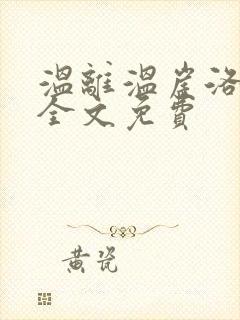 温離温崖洛
全文免費
黄瓷